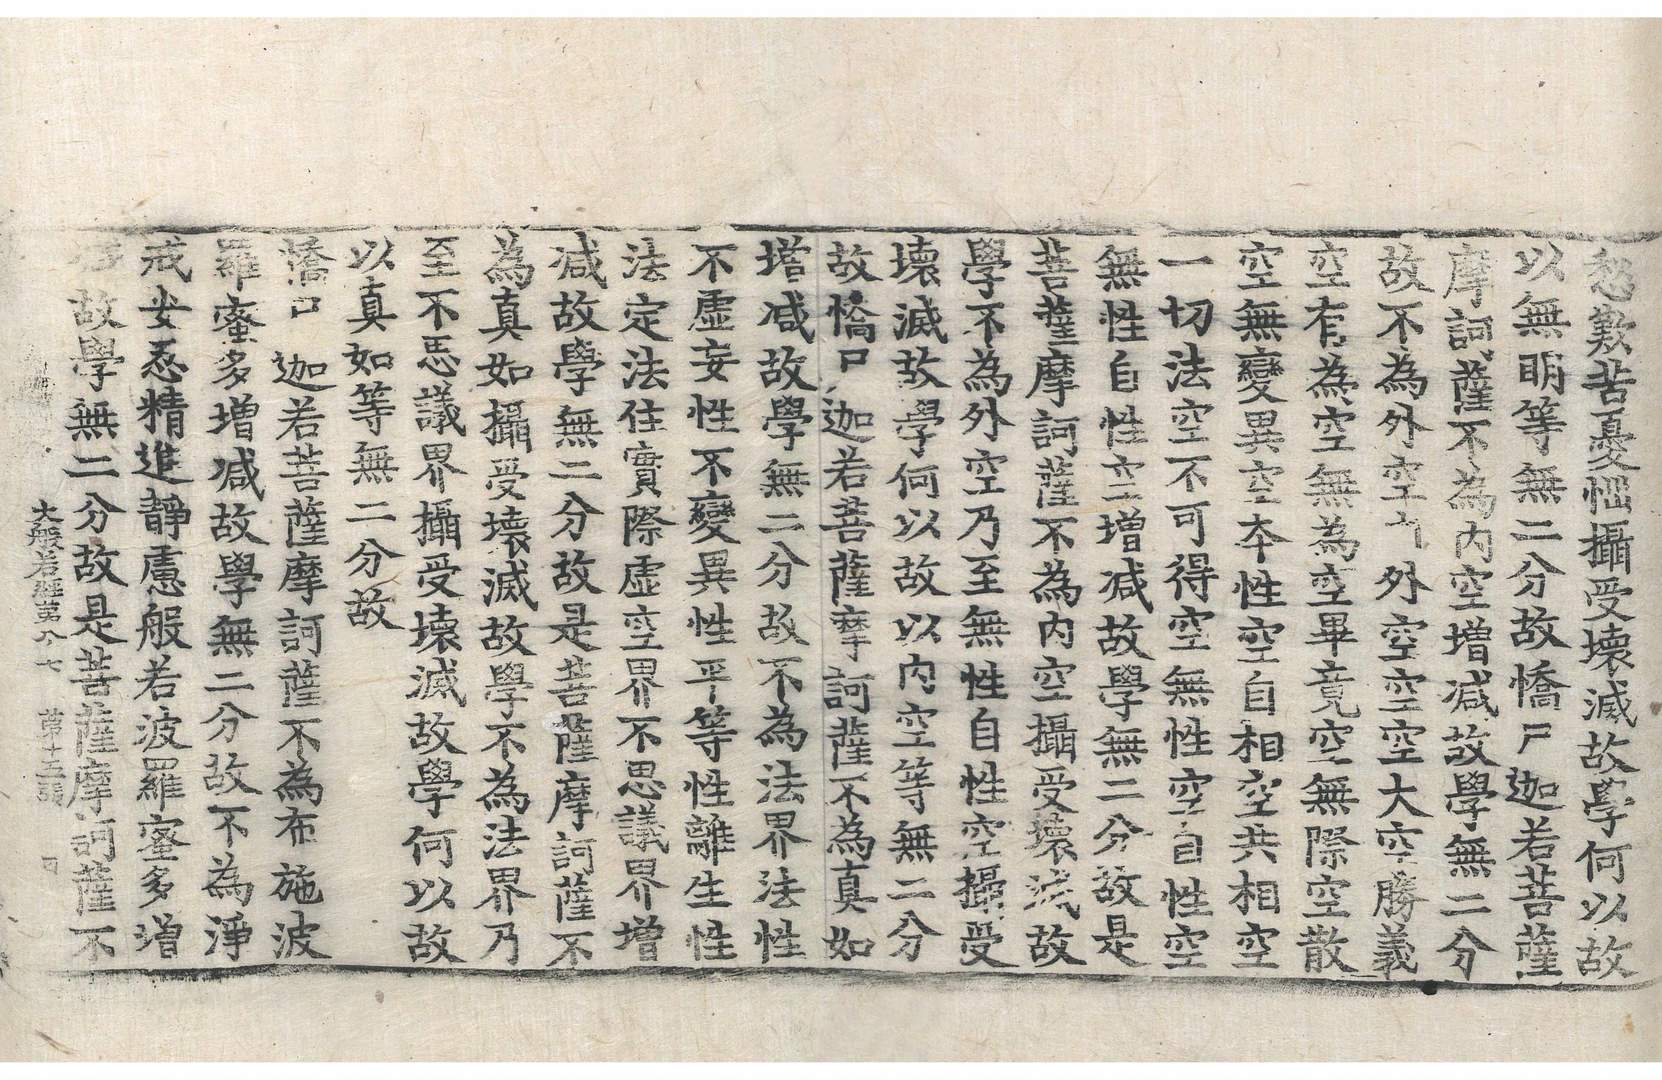 愁歎苦憂惱攝受壞滅故學何以故
以無明等無二分故憍尸迦若菩薩
摩訶薩不為內空增減故學無二分
故不為外空內外空空空大空勝義
空有為空無為空畢竟空無際空散
空無變異空本性空自相空共相空
一切法空不可得空無性空自性空
無性自性空增減故學無二分故是
菩薩摩訶薩不為內空攝受壞滅故
學不為外空乃至無性自性空攝受
壞滅故學何以故以內空等無二分
故憍尸迦若菩薩摩訶薩不為真如
增減故學無二分故不為法界法性
不虛妄性不變異性平等性離生性
法定法住實際虛空界不思議界增
減故學無二分故是菩薩摩訶薩不
為真如攝受壞滅故學不為法界乃
至不思議界攝受壞滅故學何以故
以真如等無二分故
憍尸迦若菩薩摩訶薩不為布施波
羅蜜多增減故學無二分故不為淨
戒安忍精進靜慮般若波羅蜜多增
減故學無二分故是菩薩摩訶薩不
大般若經第八七 第十五張